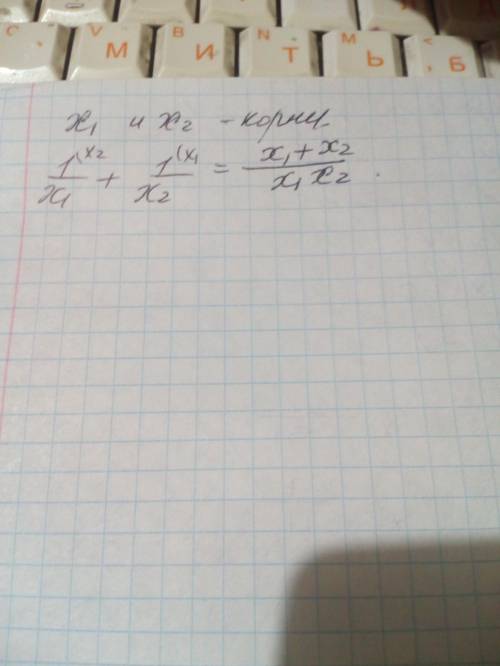 C V B N M <
М И Т Ь Б
x₁ и x₂ - корни
1⁽ˣ²/x₁ + 1⁽ˣ¹/x₂ = x₁ + x₂/x₁ x₂ .